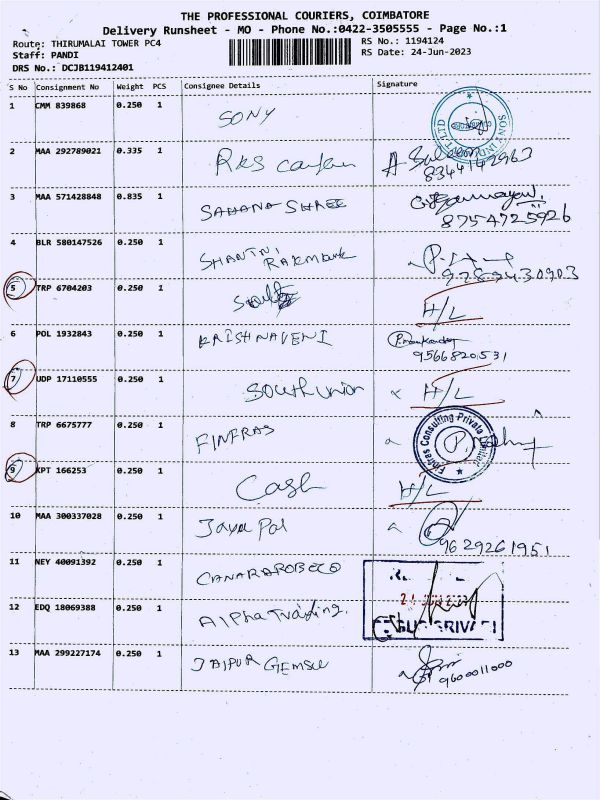 THE PROFESSIONAL COURIERS, COIMBATORE
Delivery Runsheet - MO - Phone No.:0422-3505555 - Page No.:1
Route: THIRUMALAI TOWER PC4 RS No.: 1194124
Staff: PANDI RS Date: 24-Jun-2023
DRS No.: DCJB119412401
S No Consignment No Weight PCS Consignee Details Signature
1 CMM 839868 0.250 1 SONY
2 MAA 292789021 0.335 1 RKS
8344142963
3 MAA 571428848 0.835 1 SAHANA SHREE
8754725926
4 BLR 580147526 0.250 1 SHANTHI
9789430903
5 TRP 6704203 0.250 1 H/L
6 POL 1932843 0.250 1 KRISHNAVENI
9566820531
7 UDP 17110555 0.250 1 South union H/L
8 TRP 6675777 0.250 1 FINFRAS Finfras Consulting Private Limited
9 KPT 166253 0.250 1 Cash H/L
10 MAA 300337028 0.250 1 Jaya Pal
9629261951
11 NEY 40091392 0.250 1 CANARAROBECO
12 EDQ 18069388 0.250 1 Alpha Trading.
13 MAA 299227174 0.250 1 JAIPUR GEMS
9600011000